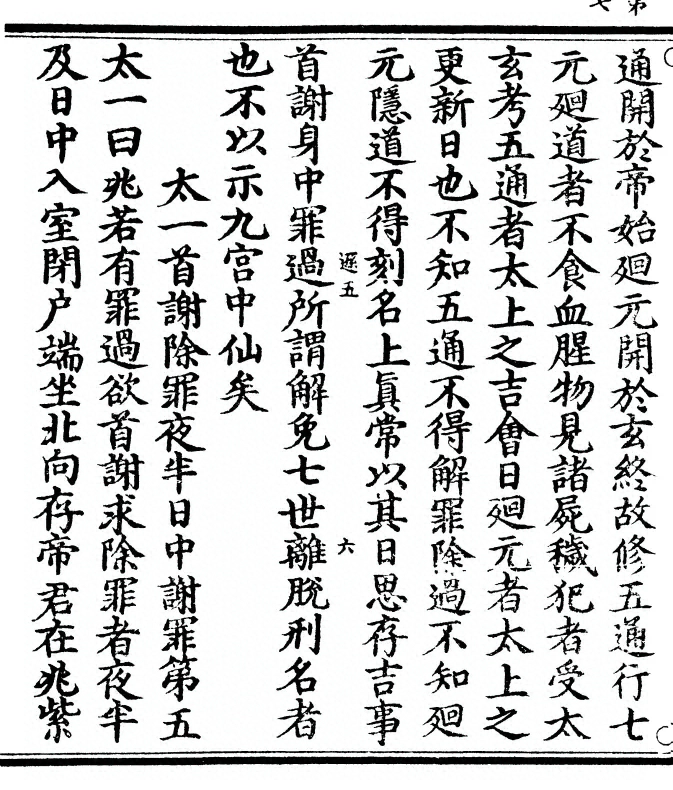 通開於帝始廻元開於玄終故修五通行七
元廻道者不食血腥物見諸屍穢犯者受太
玄考五通者太上之吉會日廻元者太上之
更新日也不知五通不得解罪除過不知廻
元隱道不得刻名上眞常以其日思存吉事
遲五
六
首謝身中罪過所謂解免七世離脫刑名者
也不以示九宮中仙矣
太一首謝除罪夜半日中謝罪第五
太一曰兆若有罪過欲首謝求除罪者夜半
及日中入室閉户端坐北向存帝君在兆紫